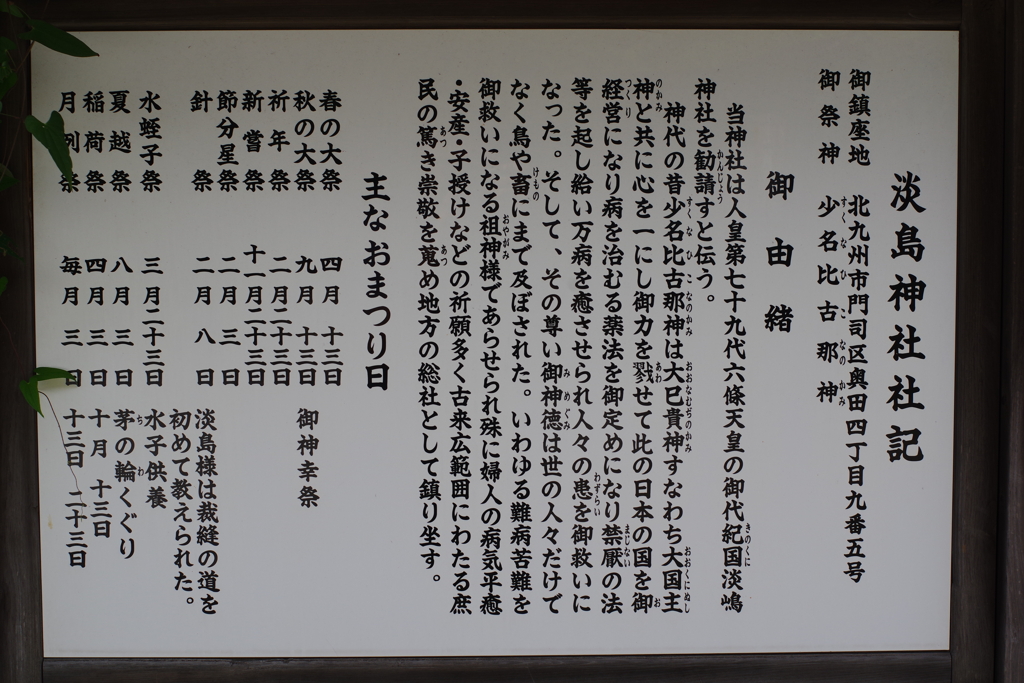 淡島神社社記
御鎮座地 北九州市門司区奥田四丁目九番五号
御祭神 少名比古那神
御由緒
当神社は人皇第七十九代六條天皇の御代紀国淡嶋
神社を勧請すと伝う。
神代の昔少名比古那神は大已貴神すなわち大国主
神と共に心を一にし御力を戮せて此の日本の国を御
経営になり病を治むる薬法を御定めになり禁厭の法
等を起し給い万病を癒させられ人々の患を御救いに
なった。そして、その尊い御神徳は世の人々だけで
なく鳥や畜にまで及ぼされた。いわゆる難病苦難を
御救いになる祖神様であらせられ殊に婦人の病気平癒
・安産・子授けなどの祈願多く古来広範囲にわたる庶
民の篤き崇敬を蒐め地方の総社として鎮り坐す。
主なおまつり日
春の大祭 四月 十三日
秋の大祭 九月 十三日 御神幸祭
祈年祭 二月二十三日
新嘗祭 十一月二十三日
節分星祭 二月 三日
針祭 二月 八日 淡島様は裁縫の道を
初めて教えられた。
水蛭子祭 三月二十三日 水子供養
夏越祭 八月 三日 茅の輪くぐり
稲荷祭 四月 三日 十月 十三日
月例祭 毎月 三日 十三日 二十三日